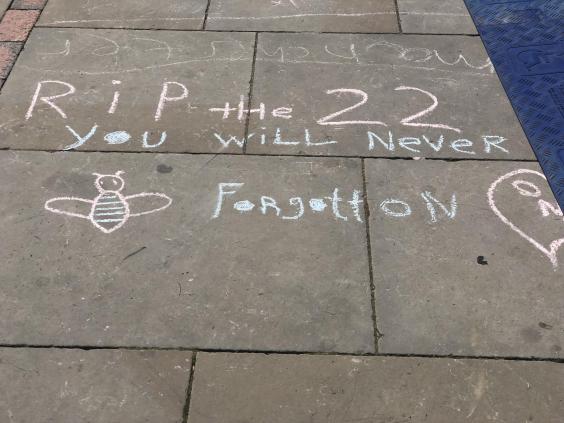 RiP the 22
you will Never
Forgotton